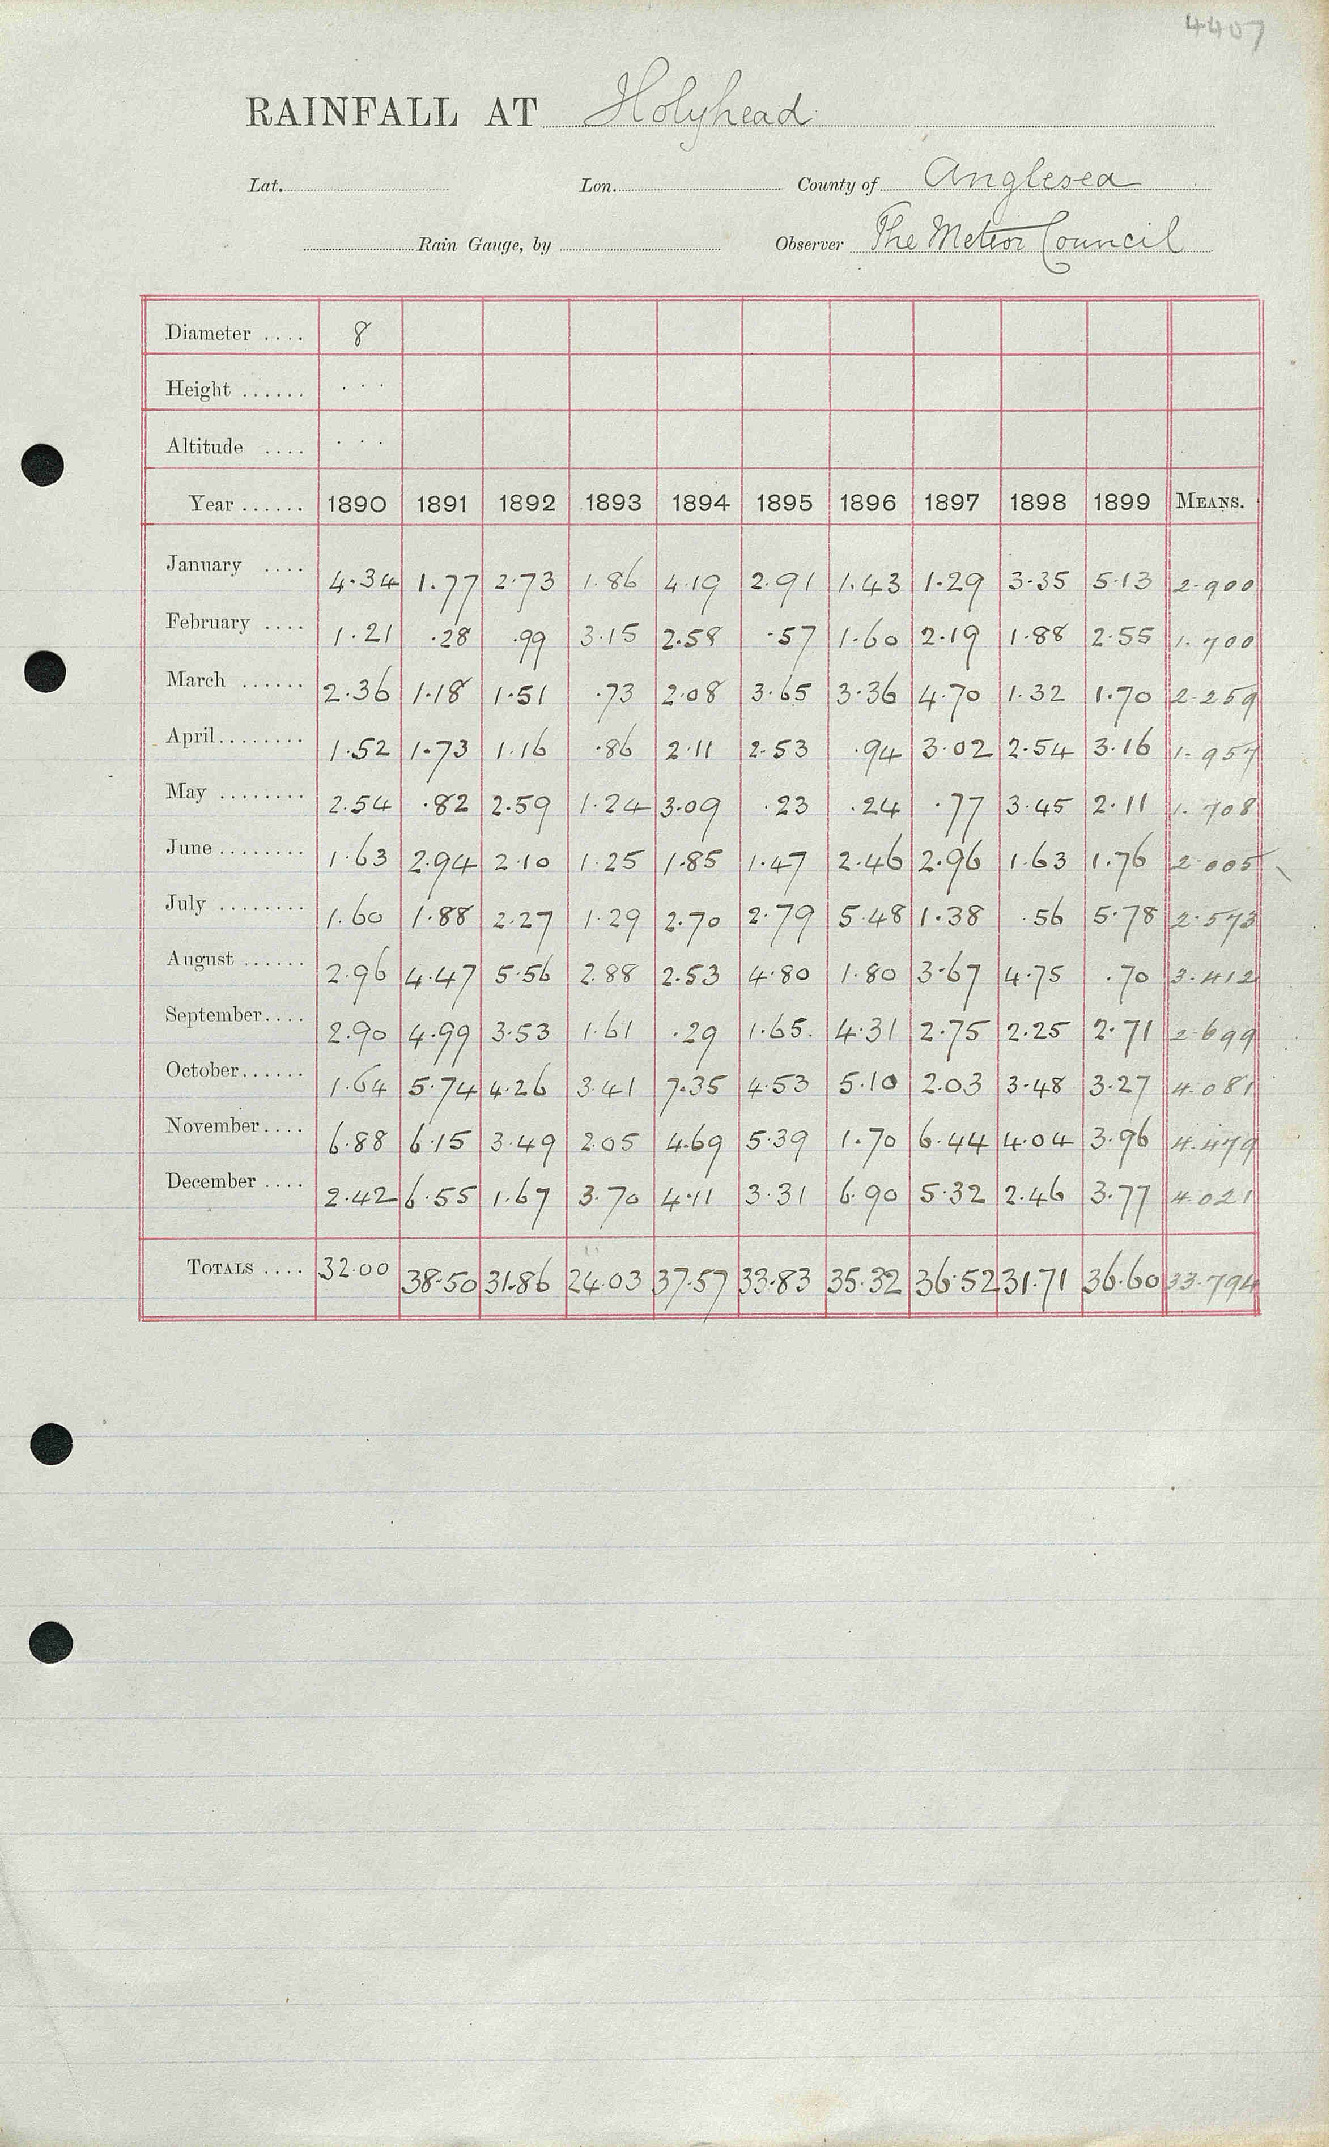 4407
RAINFALL AT Holyhead
Lat. Lon. County of Anglesea
Rain Gauge, by Observer The Meteor Council
Diameter .... 8
Height ...... . . .
Altitude .... . . .
Year ...... 1890 1891 1892 1893 1894 1895 1896 1897 1898 1899 MEANS.
January .... 4.34 1.77 2.73 1.86 4.19 2.91 1.43 1.29 3.35 5.13 2.900
February .... 1.21 .28 .99 3.15 2.58 .57 1.60 2.19 1.88 2.55 1.700
March ...... 2.36 1.18 1.51 .73 2.08 3.65 3.36 4.70 1.32 1.70 2.259
April........ 1.52 1.73 1.16 .86 2.11 2.53 .94 3.02 2.54 3.16 1.957
May ........ 2.54 .82 2.59 1.24 3.09 .23 .24 .77 3.45 2.11 1.708
June ........ 1.63 2.94 2.10 1.25 1.85 1.47 2.46 2.96 1.63 1.76 2.005
July ........ 1.60 1.88 2.27 1.29 2.70 2.79 5.48 1.38 .56 5.78 2.573
August ...... 2.96 4.47 5.56 2.88 2.53 4.80 1.80 3.67 4.75 .70 3.412
September.... 2.90 4.99 3.53 1.61 .29 1.65 4.31 2.75 2.25 2.71 2.699
October...... 1.64 5.74 4.26 3.41 7.35 4.53 5.10 2.03 3.48 3.27 4.081
November.... 6.88 6.15 3.49 2.05 4.69 5.39 1.70 6.44 4.04 3.96 4.479
December .... 2.42 6.55 1.67 3.70 4.11 3.31 6.90 5.32 2.46 3.77 4.021
TOTALS .... 32.00 38.50 31.86 24.03 37.57 33.83 35.32 36.52 31.71 36.60 33.794